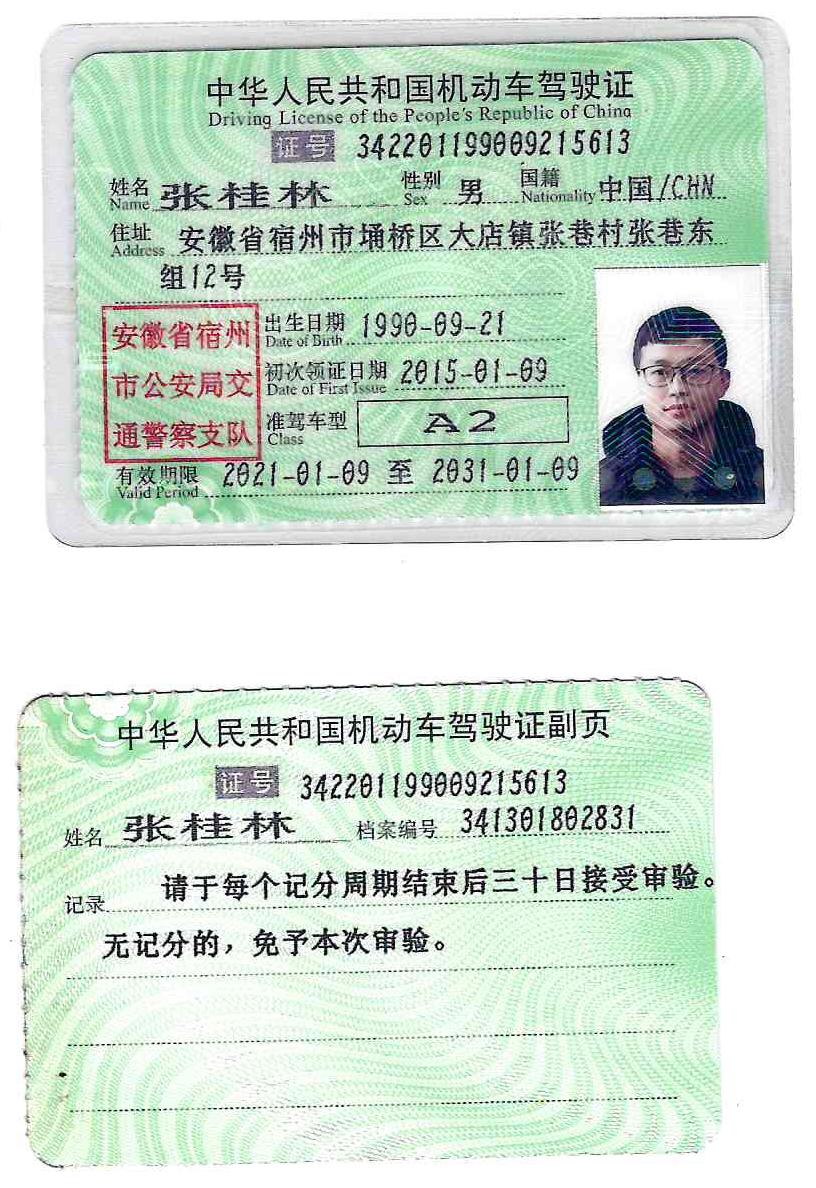 中华人民共和国机动车驾驶证
Driving License of the People's Republic of China
证号 342201199009215613
姓名 张桂林 性别 男 国籍 中国/CHN
Name Sex Nationality
住址 安徽省宿州市埇桥区大店镇张巷村张巷东
Address
组12号
安徽省宿州
市公安局交
通警察支队
出生日期 1990-09-21
Date of Birth
初次领证日期 2015-01-09
Date of First Issue
准驾车型 A2
Class
有效期限 2021-01-09 至 2031-01-09
Valid Period
中华人民共和国机动车驾驶证副页
证号 342201199009215613
姓名 张桂林 档案编号 341301802831
记录 请于每个记分周期结束后三十日接受审验。
无记分的，免予本次审验。